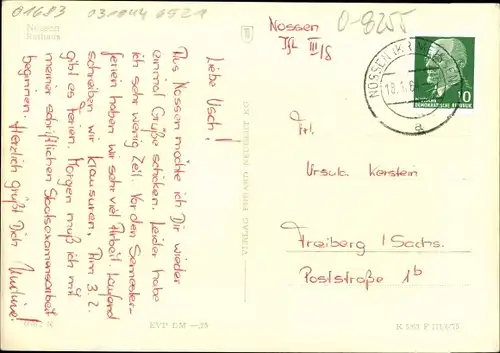 01683
031044 6521
Nossen
Rathaus
Nossen
III/8
0-8255
NOSSEN
18.1.6
10
DEMOKRATISCHE REPUBLIK
Liebe Usch!
Aus Nossen möchte ich Dir wieder
einmal Grüße schicken. Leider habe
ich sehr wenig Zeit. Vor den Semester-
ferien haben wir sehr viel Arbeit. Laufend
schreiben wir Klausuren. Am 3.2.
gibt es Ferien. Morgen muß ich mit
meiner schriftlichen Staatsexamensarbeit
beginnen. Herzlich grüßt Dich
VERLAG ERHARD NEUBERT KG
EVP DM —,25
Frl.
Ursula Kerstein
Freiberg / Sachs.
Poststraße 1b